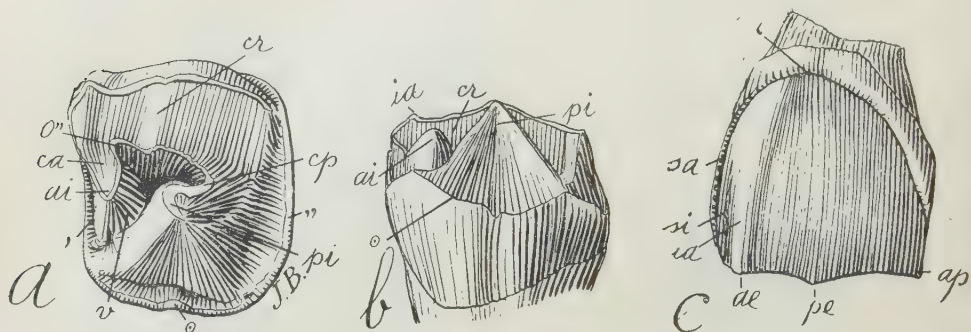 cr
O"
ca
ai
'
v
o
cp
"
pi
J.B.
a
ia
cr
pi
ai
o
b
'
sa
si
ia
ae
pe
ap
c